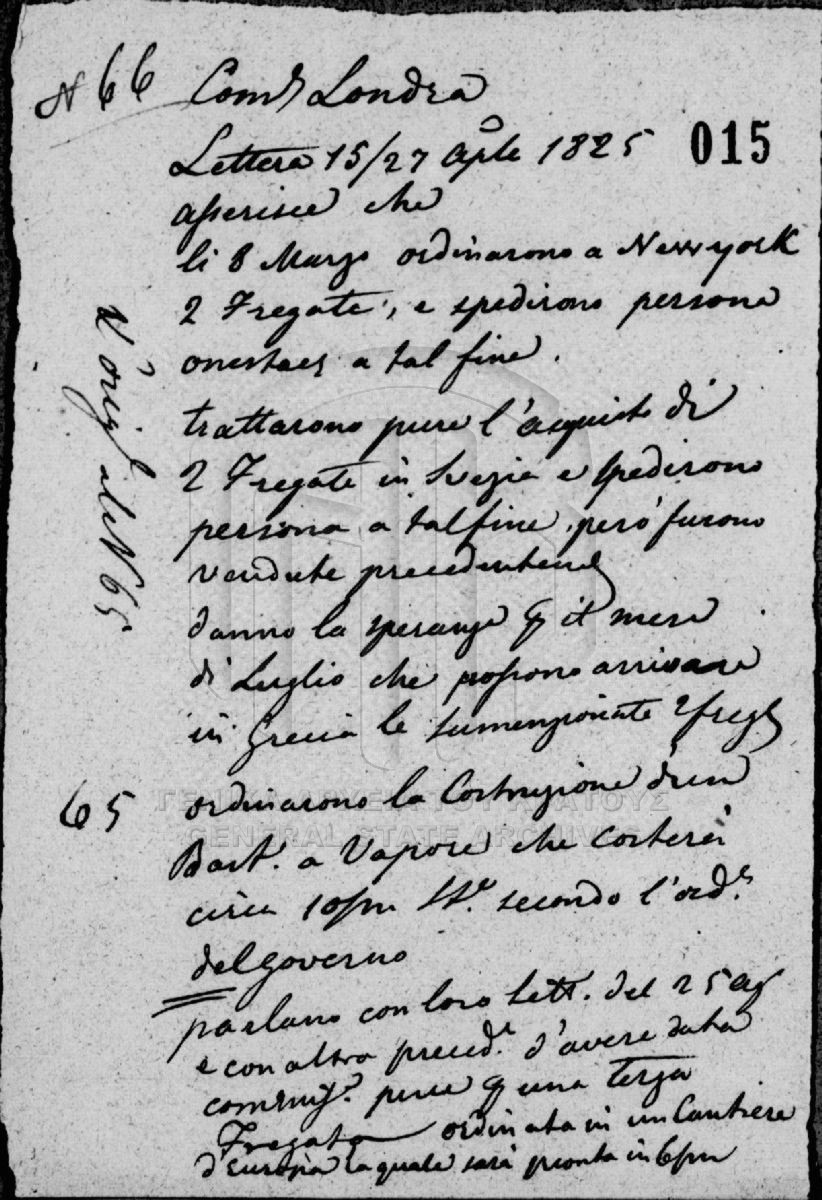 N 66 Com. Londra
015
Lettera 15/27 Aple 1825
asserisce che
li 8 Marzo ordinarono a Newyork
2 Fregate, e spedirono persone
oneste a tal fine.
trattarono pure l'acquisto di
2 Fregate in Svezia e spedirono
persona a tal fine, però furono
vendute precedentem
danno la speranza il mese
di Luglio che possono arrivare
in Grecia le sumenzionate 2 freg
65 ordinarono la Costruzione d'un
Bast. a Vapore che costerà
circa 10/m secondo l'ord.e
del governo
parlano con loro Lett. del 25
e con altra preced.e d'avere data
pure una terza
Fregata ordinata in un Cantiere
d'Europa la quale sarà pronta in 6/m
N 65
ΓΕΝΙΚΑ ΑΡΧΕΙΑ ΤΟΥ ΚΡΑΤΟΥΣ
GENERAL STATE ARCHIVES